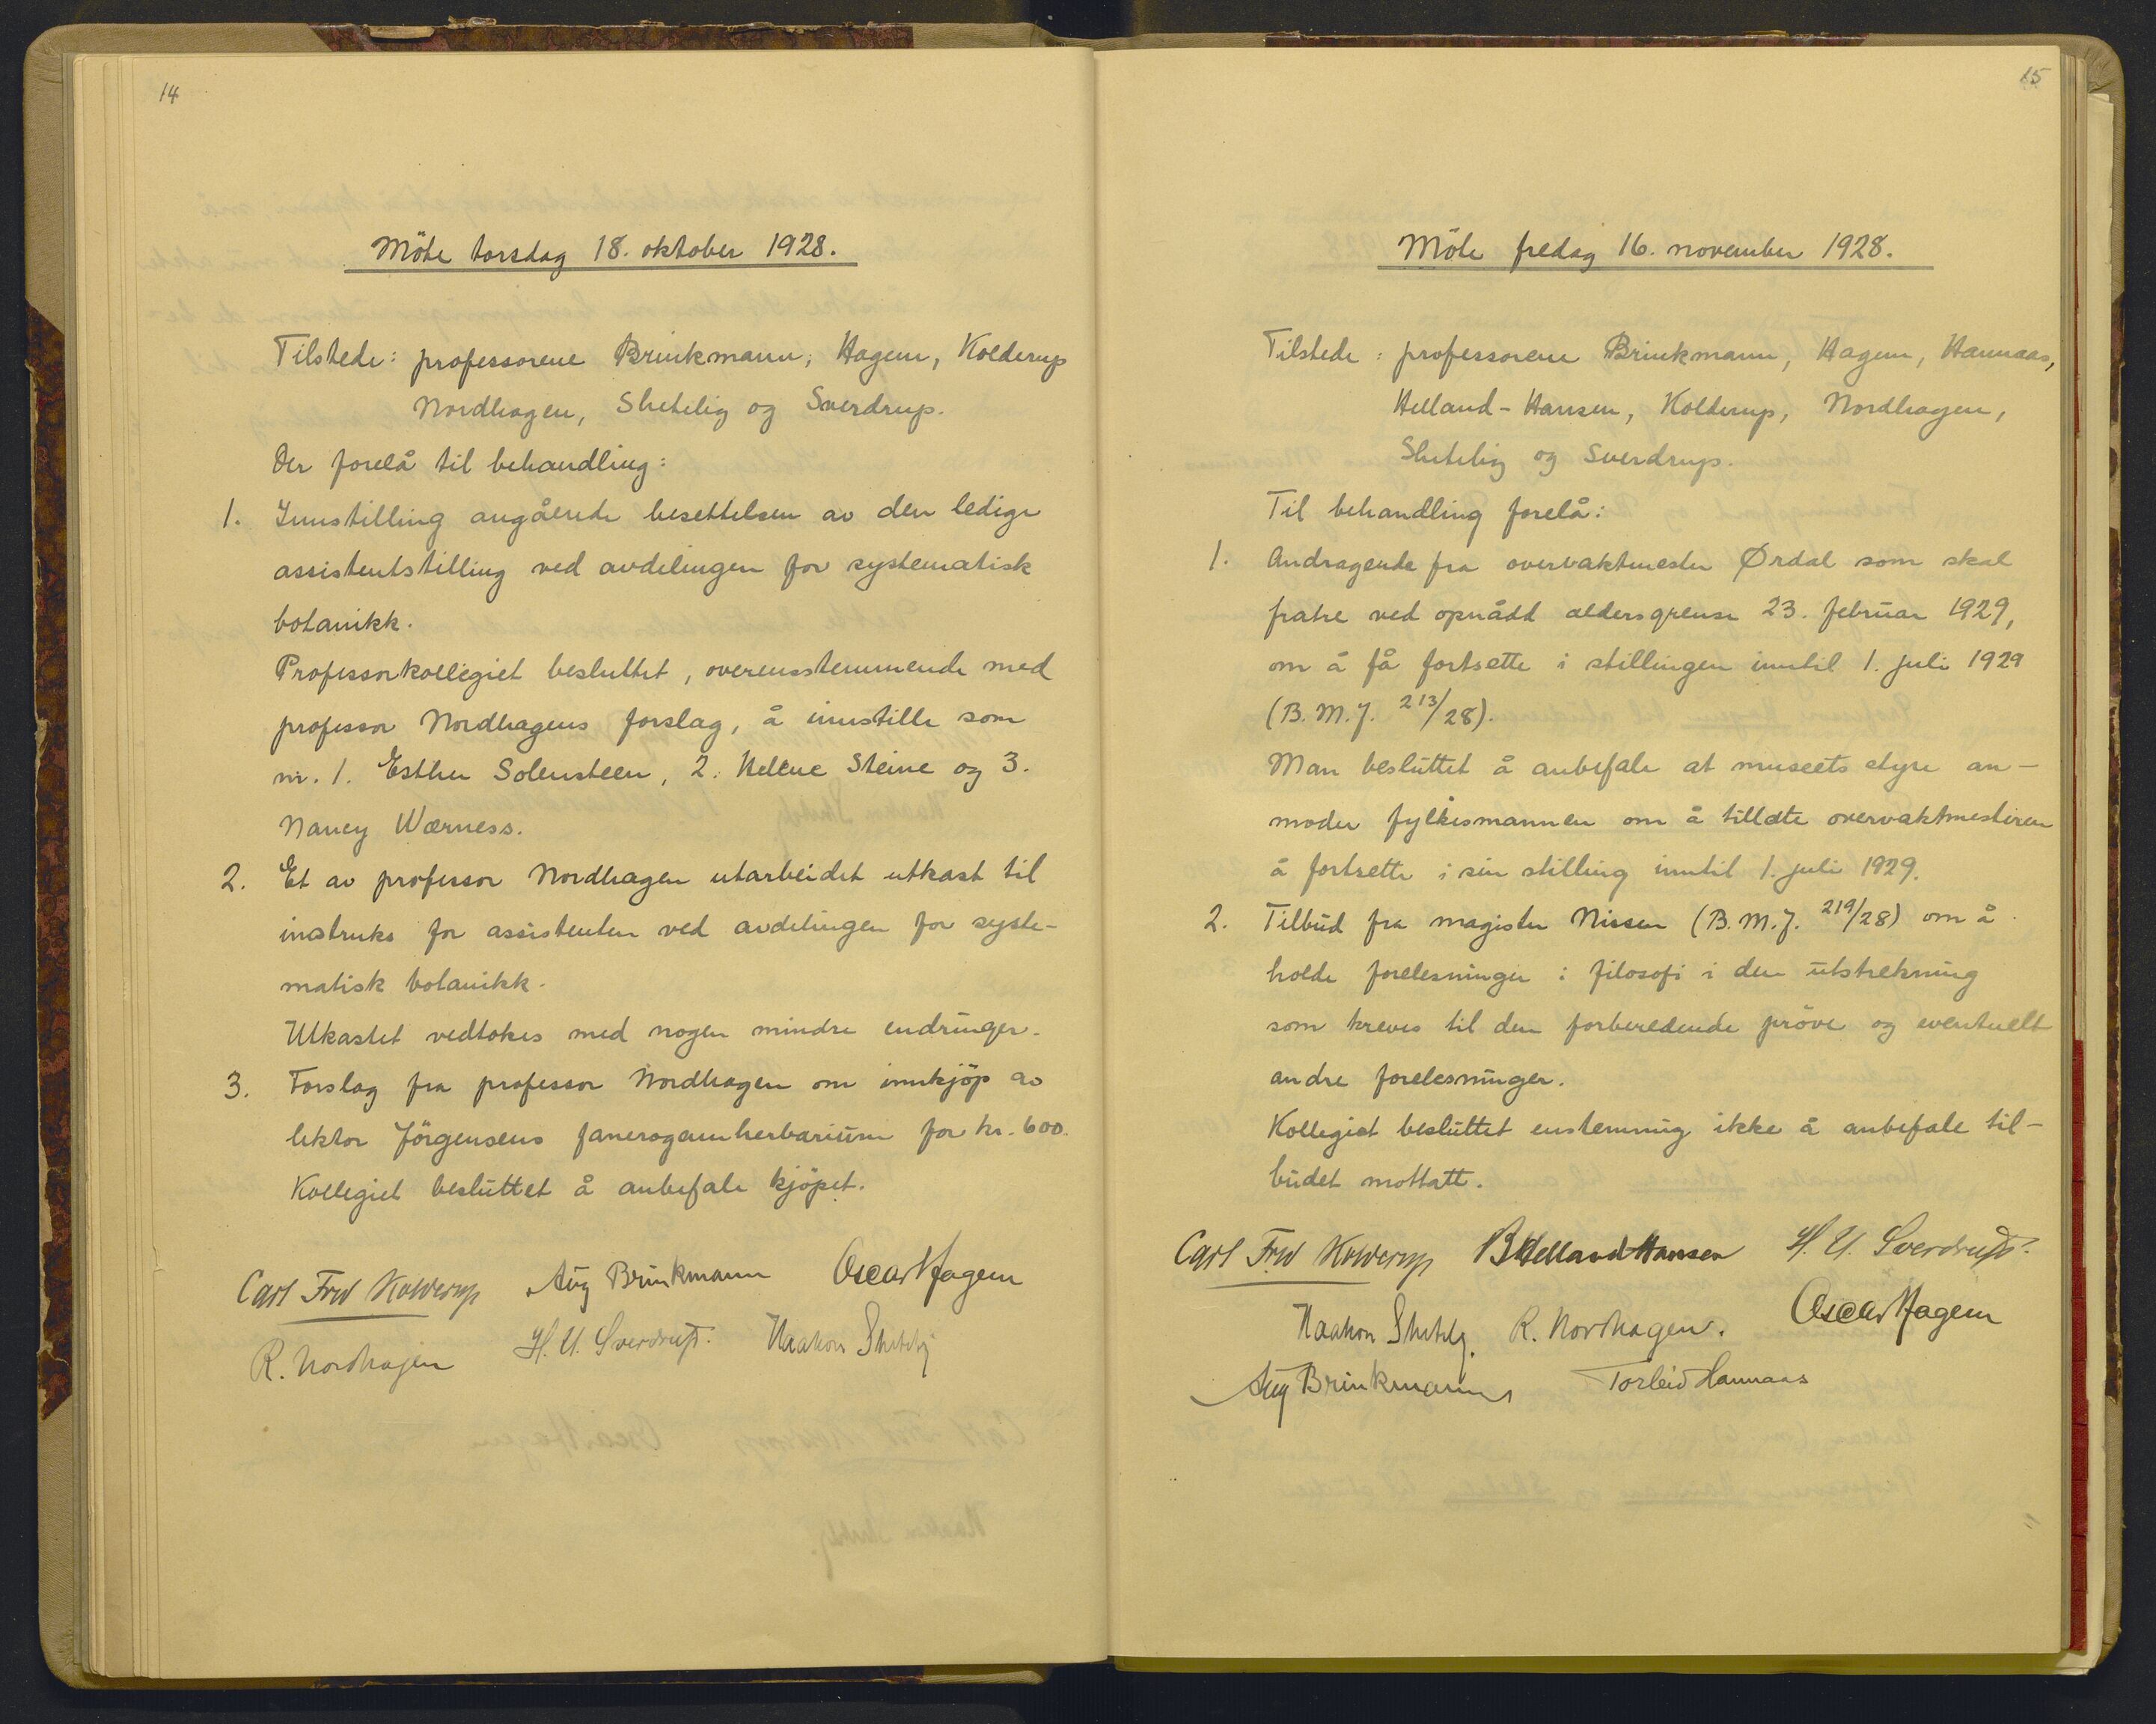 14
Möte torsdag 18. oktober 1928.
Tilstede: professorene Brinkmann, Hagem, Kolderup
Nordhagen, Shetelig og Sverdrup.
Der forelå til behandling:
1. Innstilling angående besettelsen av den ledige
assistentstilling ved avdelingen for systematisk
botanikk.
Professorkollegiet besluttet, overensstemmende med
professor Nordhagens forslag, å innstille som
nr. 1. Esther Solensteen, 2. Helene Steine og 3.
Nancy Wærness.
2. Et av professor Nordhagen utarbeidet utkast til
instruks for assistenten ved avdelingen for syste-
matisk botanikk.
Utkastet vedtokes med nogen mindre endringer.
3. Forslag fra professor Nordhagen om innkjöp av
lektor Jörgensens fanerogamherbarium for kr. 600.
Kollegiet besluttet å anbefale kjöpet.
Carl Fred Kolderup Aug Brinkmann Oscar Hagem
R. Nordhagen H. U. Sverdrup. Haakon Shetelig
15
Möte fredag 16. november 1928.
Tilstede: professorene Brinkmann, Hagem, Hannaas,
Helland-Hansen, Kolderup, Nordhagen,
Shetelig og Sverdrup.
Til behandling forelå:
1. Andragende fra overvaktmester Ørdal som skal
fratre ved opnådd aldersgrense 23. februar 1929,
om å få fortsette i stillingen inntil 1. juli 1929
(B. M. J. 213/28).
Man besluttet å anbefale at museets styre an-
moder fylkesmannen om å tillate overvaktmesteren
å fortsette i sin stilling inntil 1. juli 1929.
2. Tilbud fra magister Nissen (B. M. J. 219/28) om å
holde forelesninger i filosofi i den utstrekning
som kreves til den forberedende pröve og eventuelt
andre forelesninger.
Kollegiet besluttet enstemmig ikke å anbefale til-
budet mottatt.
Carl Fred Kolderup B Helland Hansen H. U. Sverdrup.
Haakon Shetelig. R. Nordhagen. Oscar Hagem
Aug Brinkmann Torleiv Hannaas